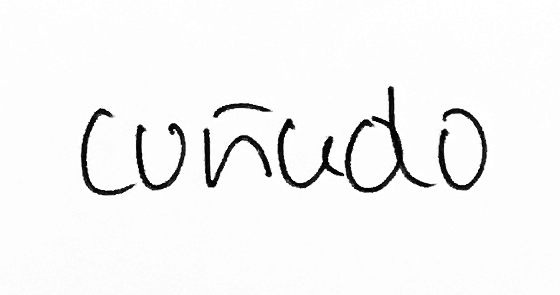 cuñado